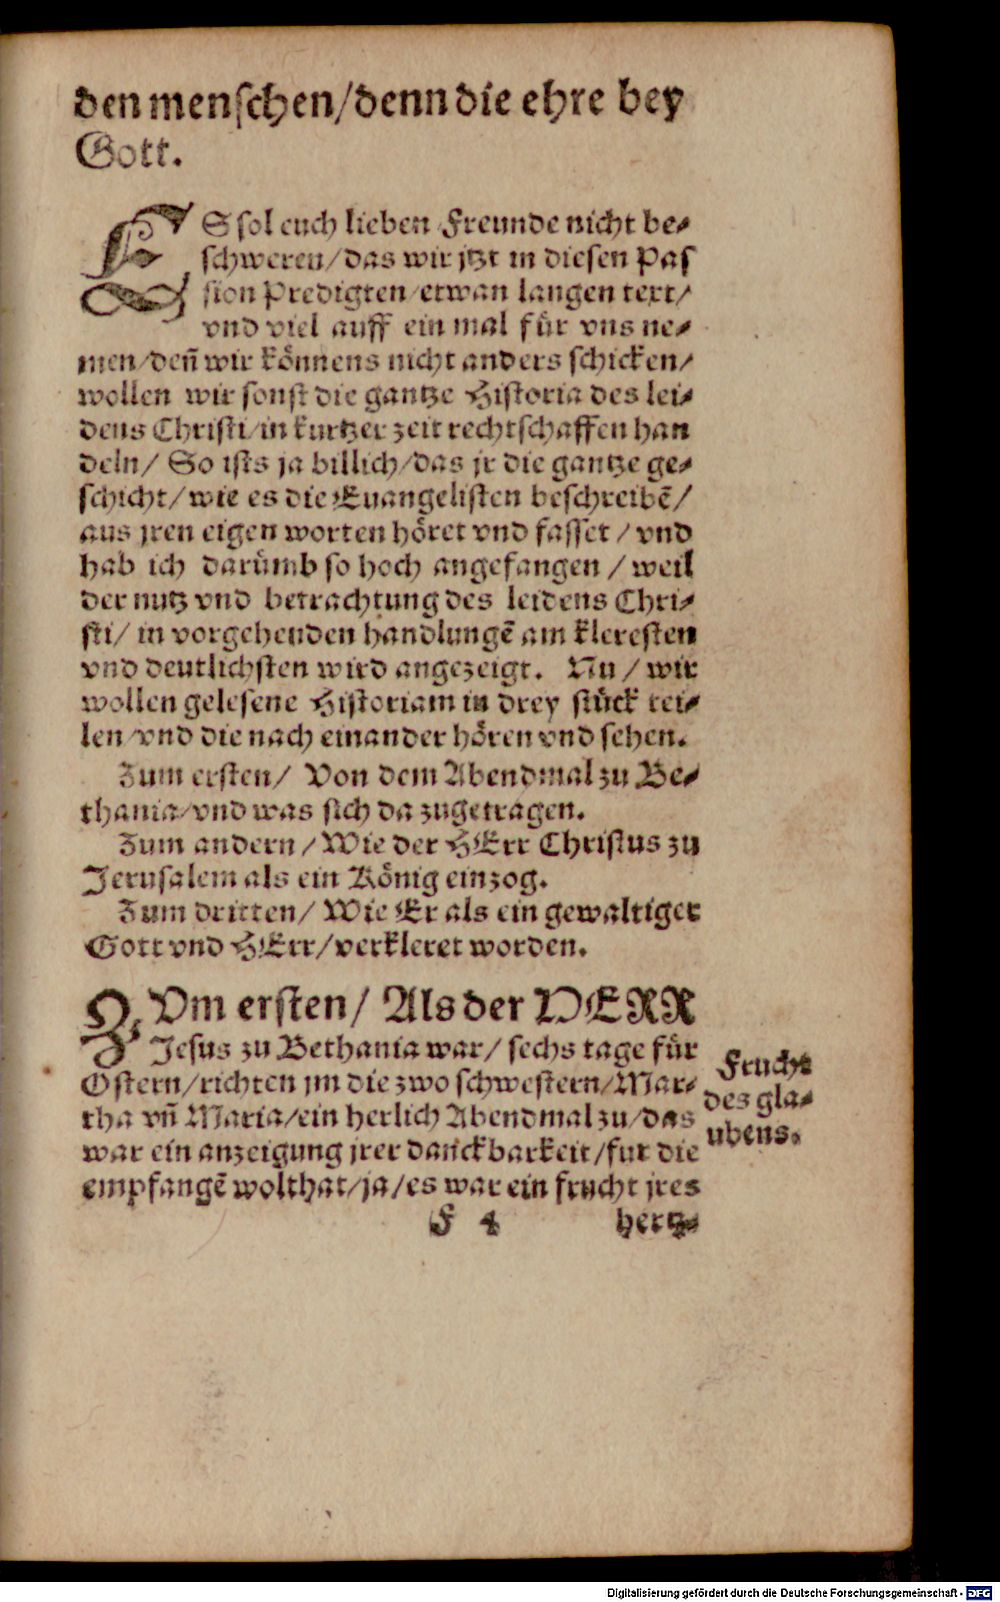 den menſchen/denn die ehre bey
Gott.
ES ſol euch lieben Freunde nicht be⸗
ſchweren/das wir jtzt in dieſen Paſ
ſion Predigten/etwan langen text/
vnd viel auff ein mal fuͤr vns ne⸗
men/deñ wir koͤnnens nicht anders ſchicken/
wollen wir ſonſt die gantze Hiſtoria des lei⸗
dens Chriſti/in kurtzer zeit rechtſchaffen han
deln/ So iſts ja billich/das jr die gantze ge⸗
ſchicht/wie es die Euangeliſten beſchreibẽ/
aus jren eigen worten hoͤret vnd faſſet/vnd
hab ich daruͤmb ſo hoch angefangen/weil
der nutz vnd betrachtung des leidens Chri⸗
ſti/in vorgehenden handlungẽ am klereſten
vnd deutlichſten wird angezeigt. Nu/wir
wollen geleſene Hiſtoriam in drey ſtuͤck tei⸗
len/vnd die nach einander hoͤren vnd ſehen.
Zum erſten/ Von dem Abendmal zu Be⸗
thania/vnd was ſich da zugetragen.
Zum andern/Wie der HErr Chriſtus zu
Jeruſalem als ein Koͤnig einzog.
Zum dritten/ Wie Er als ein gewaltiger
Gott vnd HErr/verkleret worden.
ZVm erſten/ Als der HERR
Jeſus zu Bethania war/ſechs tage fuͤr
Oſtern/richten jm die zwo ſchweſtern/Mar⸗
tha vñ Maria/ein herlich Abendmal zu/das
war ein anzeigung jrer danckbarkeit/fur die
empfangẽ wolthat/ja/es war ein frucht jres
Frucht
des gla⸗
ubens.
F 4 hertz⸗
Digitalisierung gefördert durch die Deutsche Forschungsgemeinschaft - DFG